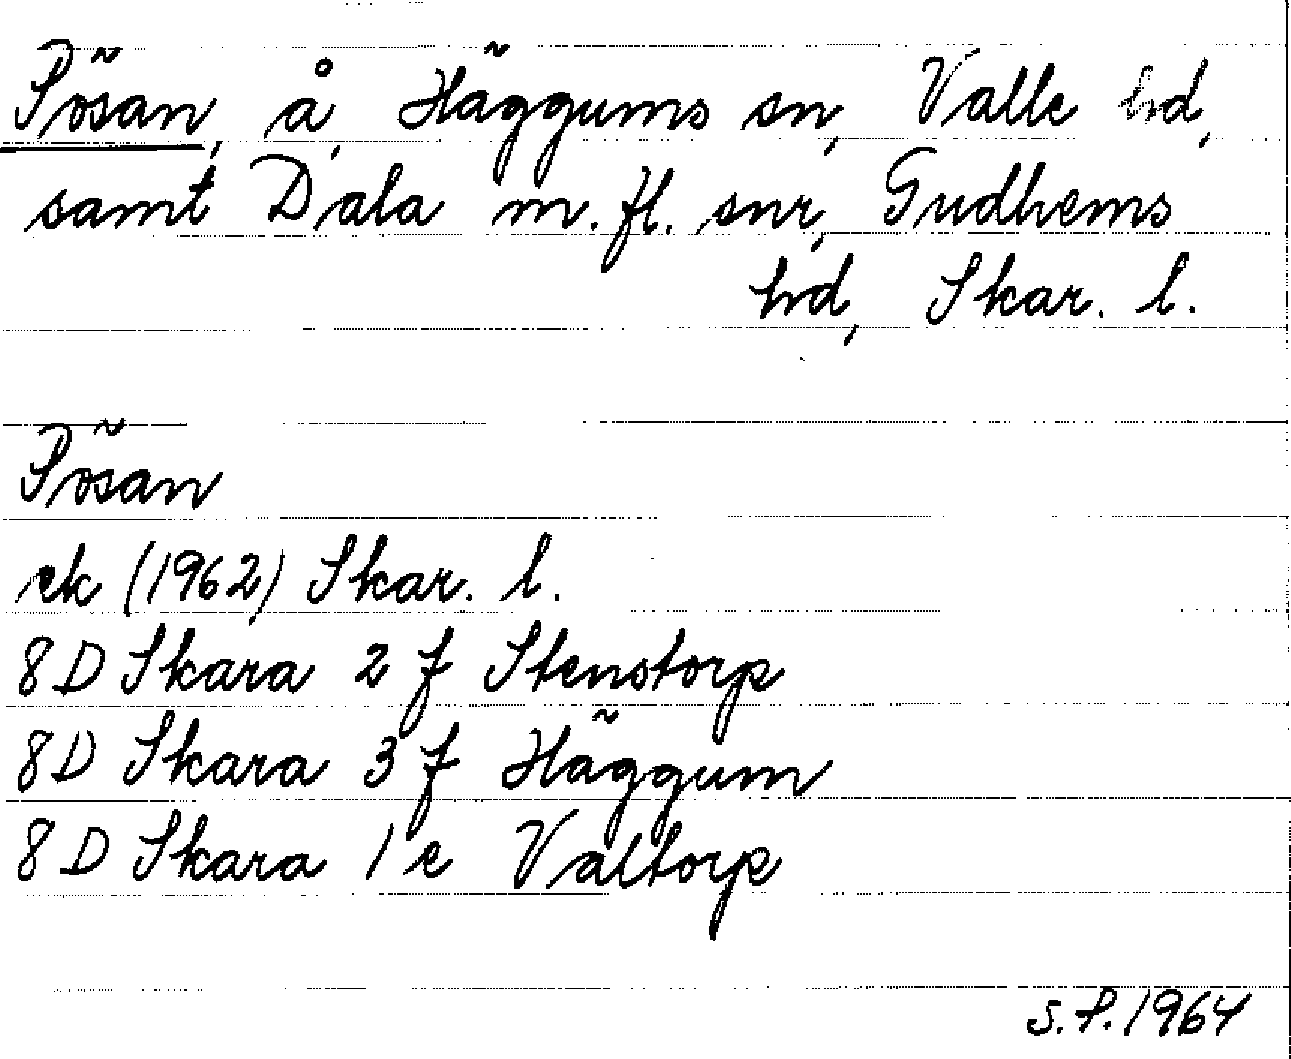 Pösan, å, Häggums sn, Valle hd,
samt Dala m.fl. snr, Gudhems
hd, Skar. l.
Pösan
ek (1962) Skar. l.
8D Skara 2 f Stenstorp
8D Skara 3 f Häggum
8D Skara 1 e Valtorp
S.P. 1964